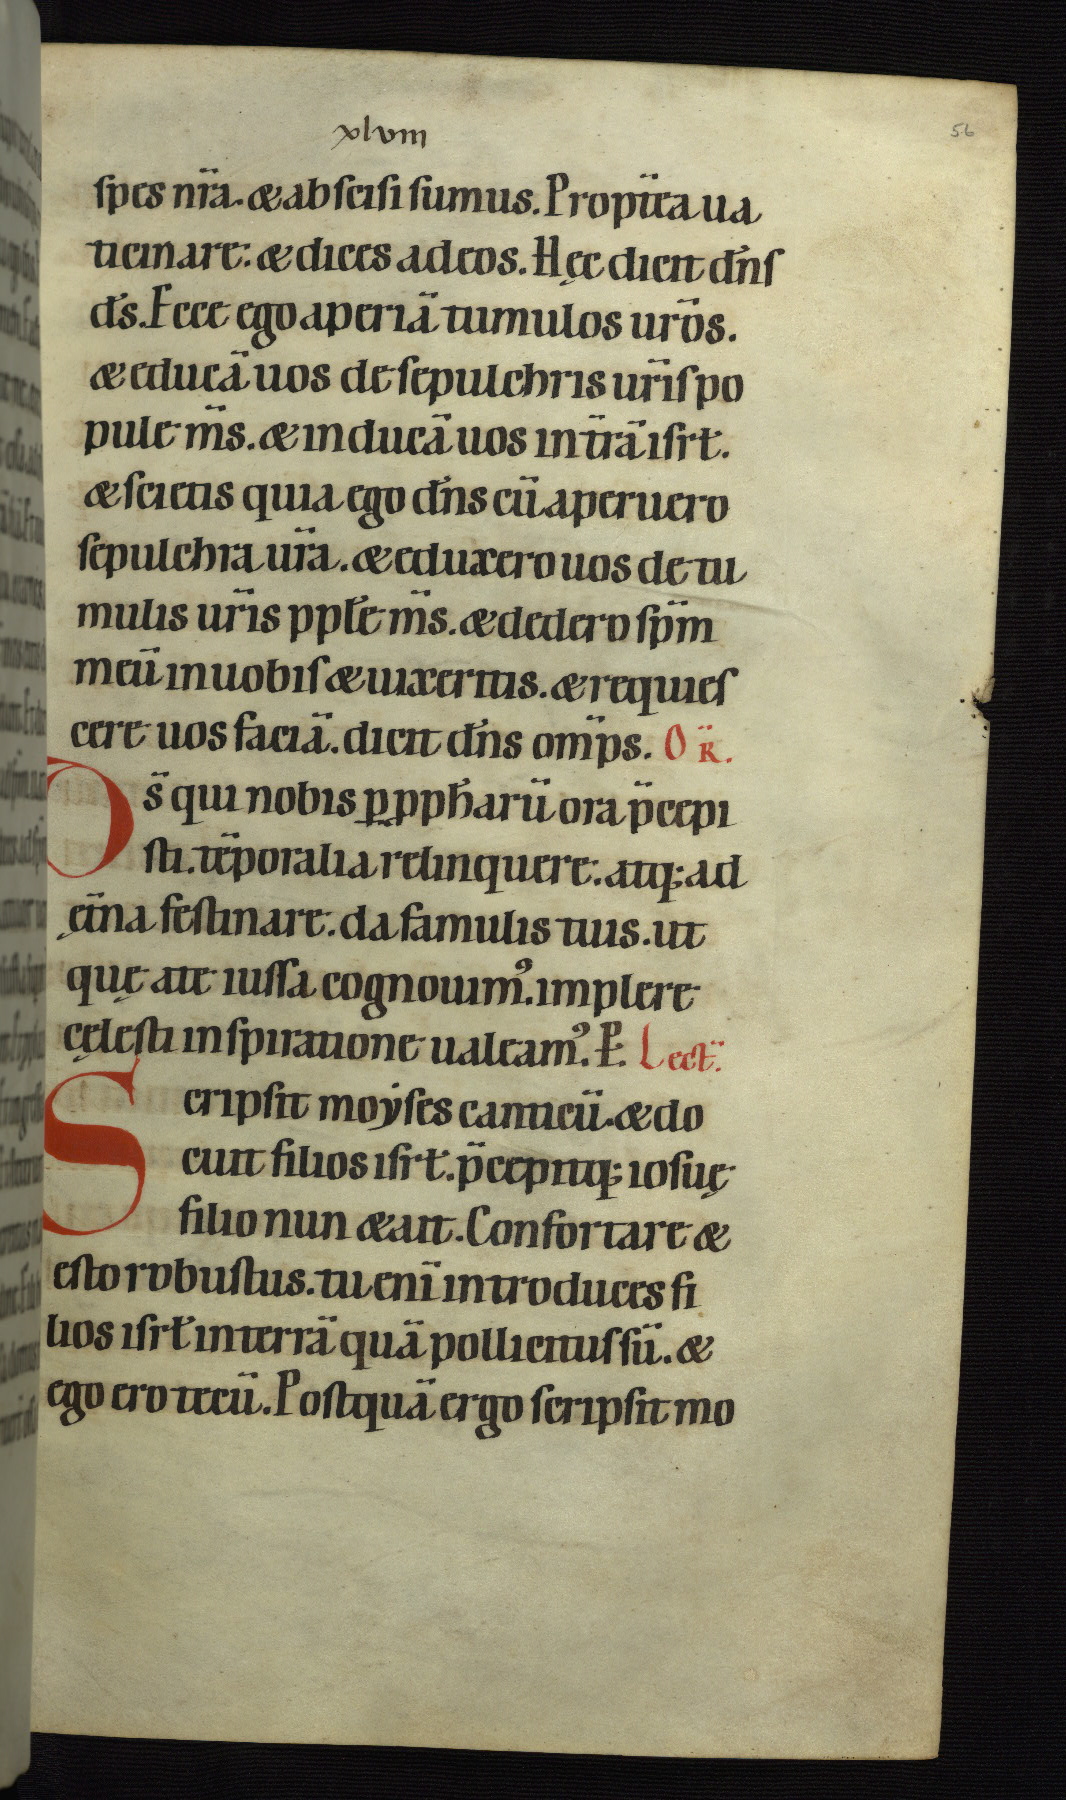 xlvııı
56
ſpes nr̄a. & abſciſi ſumus. Propt̄ea ua
ticinare: & dices ad eos. Hęc dicit dn̄ſ
ds̄. Ecce ego aperiā tumulos ur̄os.
& educā uos de ſepulchris ur̄iſ po
pule ms̄. & inducā uos in tr̄ā iſrƚ.
& ſcietis quia ego dn̄s cū aperuero
ſepulchra ur̄a. & eduxero uos de tu
mulis ur̄is ppƚe ms̄. & dedero ſpm̄
meū in uobiſ & uixeritis. & requieſ
cere uos faciā. dicit dn̄s omp̄s. OR̄.
Ds̄ qui nobis ꝑ ꝓph̄arū ora p̄cepi
ſti. tēporalia relinquere: atq; ad
ęt̄na feſtinare: da famulis tuis. ut
quę a te iuſſa cognouim᾽. implere
cęleſti inſpiratione ualeam᾽. P̱. Lect̄.
Scripſit moẏſes canticū. & do
cuit filios iſrƚ. p̄cepitq; ioſuę
filio nun & ait. Confortare &
eſto robuſtus. tu enī introduces fi
lios iſrƚ in terrā quā pollicituſ ſū. &
ego ero tecū. Poſtquā ergo ſcripſit mo